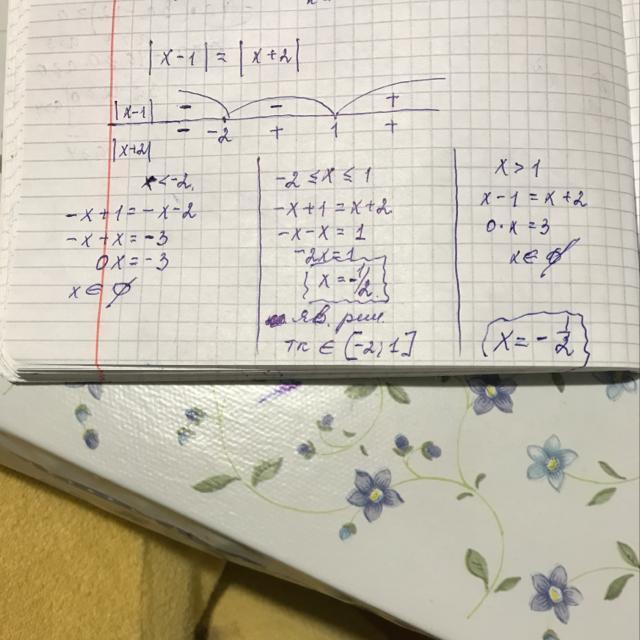 |x-1| = |x+2|
|x-1| - - +
- -2 + 1 +
|x+2|
x<-2,
-x+1=-x-2
-x+x=-3
0x=-3
x∈∅
-2≤x≤1
-x+1=x+2
-x-x=1
-2x=1
x=-1/2
яв. реш.
тк ∈ [-2;1]
x>1
x-1=x+2
0·x=3
x∈∅
x=-1/2